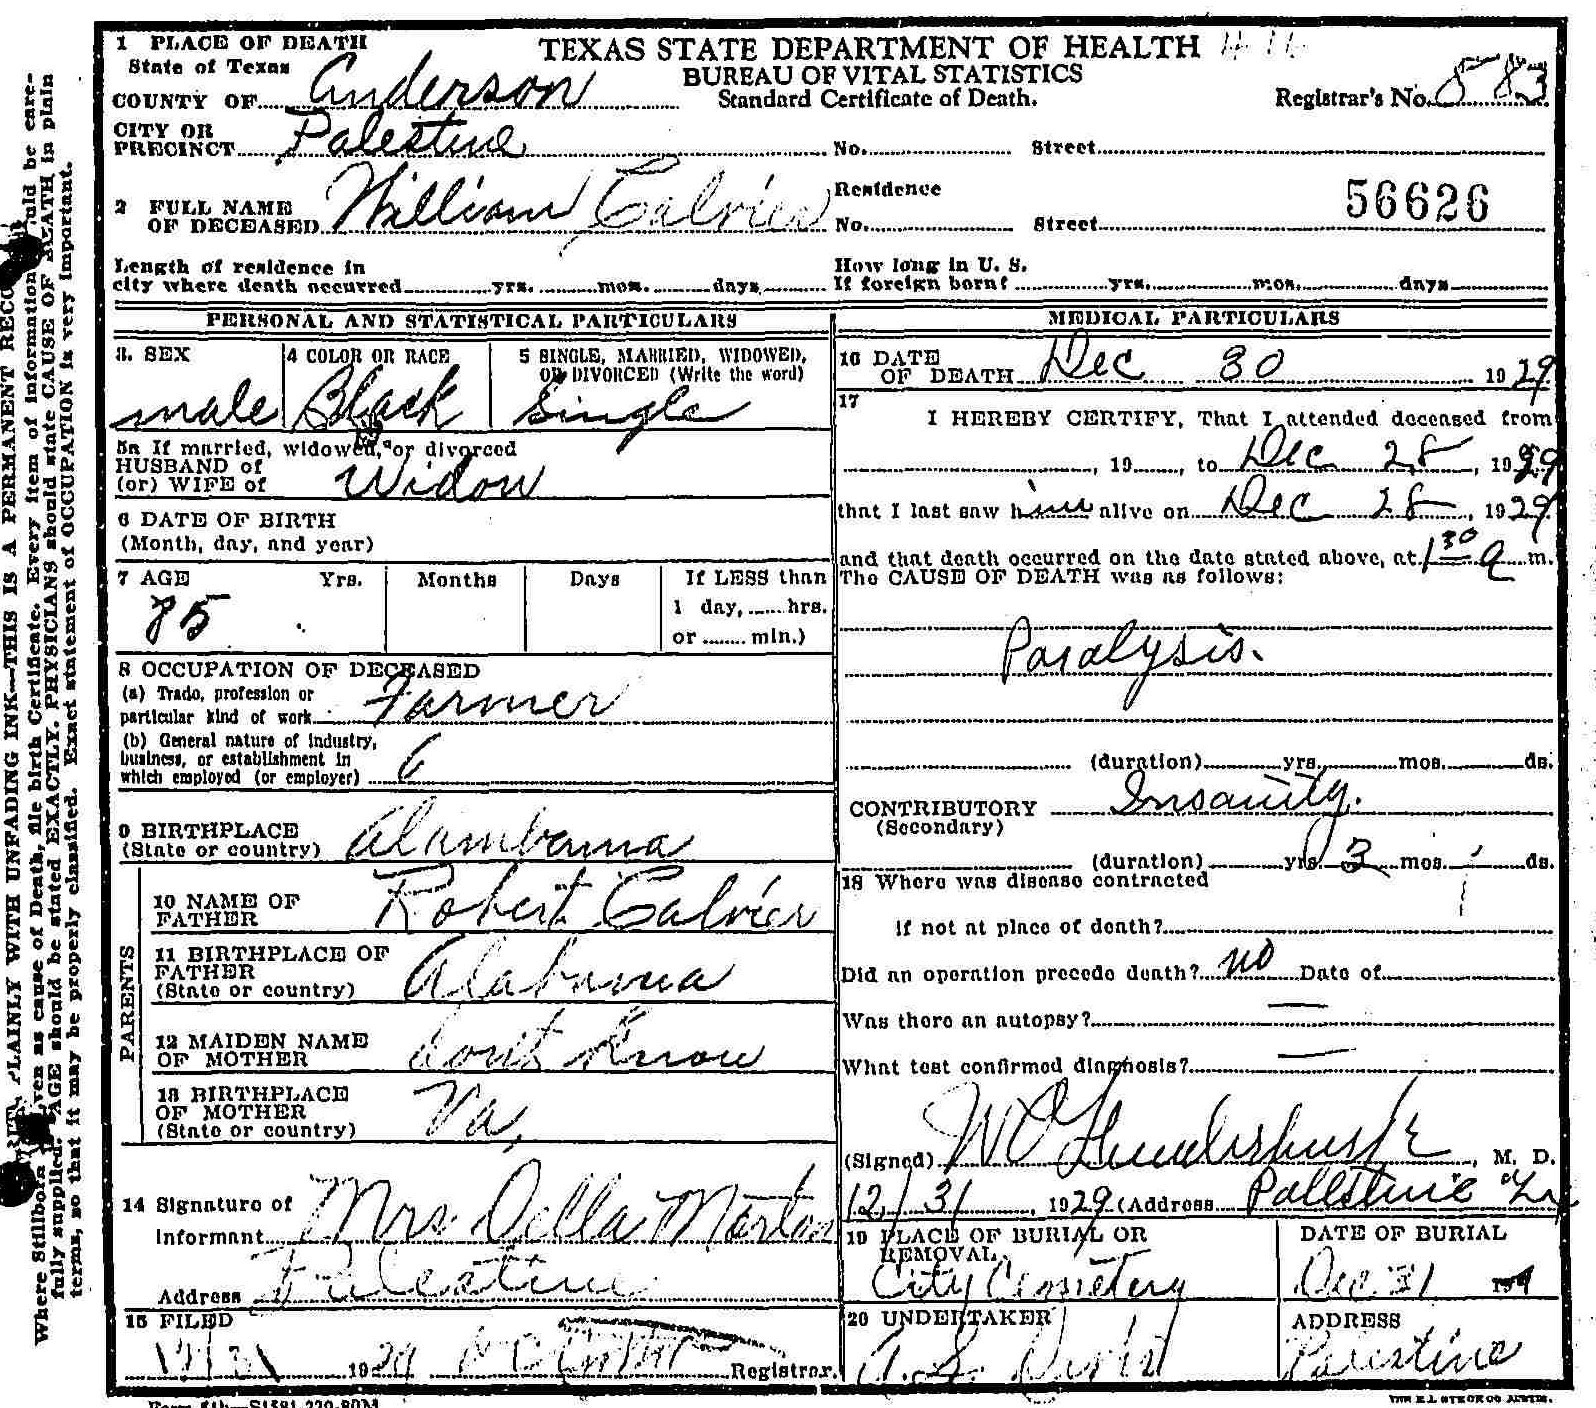 1 PLACE OF DEATH
State of Texas
COUNTY OF Anderson
CITY OR
PRECINCT Palestine
TEXAS STATE DEPARTMENT OF HEALTH
BUREAU OF VITAL STATISTICS
Standard Certificate of Death.
Registrar's No. 583
No. Street
2 FULL NAME
OF DECEASED William Calvier
Residence
No. Street
56626
Length of residence in
city where death occurred yrs. mos. days
How long in U. S.
If foreign born? yrs. mos. days
PERSONAL AND STATISTICAL PARTICULARS
3. SEX
male
4 COLOR OR RACE
Black
5 SINGLE, MARRIED, WIDOWED,
OR DIVORCED (Write the word)
Single
5a If married, widowed, or divorced
HUSBAND of
(or) WIFE of Widow
6 DATE OF BIRTH
(Month, day, and year)
7 AGE Yrs. Months Days If LESS than
85 1 day, hrs.
or min.)
8 OCCUPATION OF DECEASED
(a) Trade, profession or
particular kind of work Farmer
(b) General nature of industry,
business, or establishment in
which employed (or employer) 6
9 BIRTHPLACE
(State or country) Alambama
PARENTS
10 NAME OF
FATHER Robert Calvier
11 BIRTHPLACE OF
FATHER
(State or country) Alabama
12 MAIDEN NAME
OF MOTHER dont Know
13 BIRTHPLACE
OF MOTHER
(State or country) Va,
14 Signature of
Informant Mrs Della Morton
Address Palestine
15 FILED
12/31 1929 Registrar.
MEDICAL PARTICULARS
16 DATE
OF DEATH Dec 30 1929
17
I HEREBY CERTIFY, That I attended deceased from
, 19 , to Dec 28, 1929
that I last saw him alive on Dec 28, 1929
and that death occurred on the date stated above, at 1 30 a m.
The CAUSE OF DEATH was as follows:
Paralysis.
(duration) yrs. mos. ds.
CONTRIBUTORY Insanity.
(Secondary)
(duration) yrs. 3 mos. ds.
18 Where was disease contracted
if not at place of death?
Did an operation precede death? no Date of
Was there an autopsy? —
What test confirmed diagnosis? —
(Signed) W O Funderburk, M. D.
12/31, 1929 (Address Palestine Tex
19 PLACE OF BURIAL OR
REMOVAL
City Cemetery
DATE OF BURIAL
Dec 31 19
20 UNDERTAKER
ADDRESS
Palestine
PLAINLY WITH UNFADING INK—THIS IS A PERMANENT
Where Stillborn cause of Death, file birth Certificate. Every item of information be care-
fully supplied. AGE should be stated EXACTLY. PHYSICIANS should state CAUSE OF DEATH in plain
terms, so that it may be properly classified. Exact statement of OCCUPATION is very important.